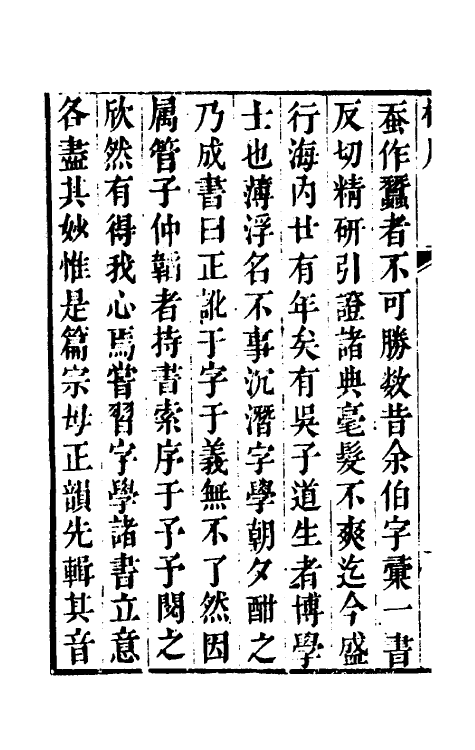 蚕作蠶者不可勝数昔余伯字彚一書
反切精研引證諸典毫髮不爽迄今盛
行海内廿有年矣有吳子道生者博學
士也薄浮名不事沉潛字學朝夕酣之
乃成書曰正訛于字于義無不了然因
属管子仲韜者持書索序于予予閱之
欣然有得我心焉甞習字學諸書立意
各盡其妙惟是篇宗母正韻先輯其音